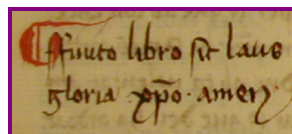 Ffinito libro sit laus
gloria xp̄o · amen